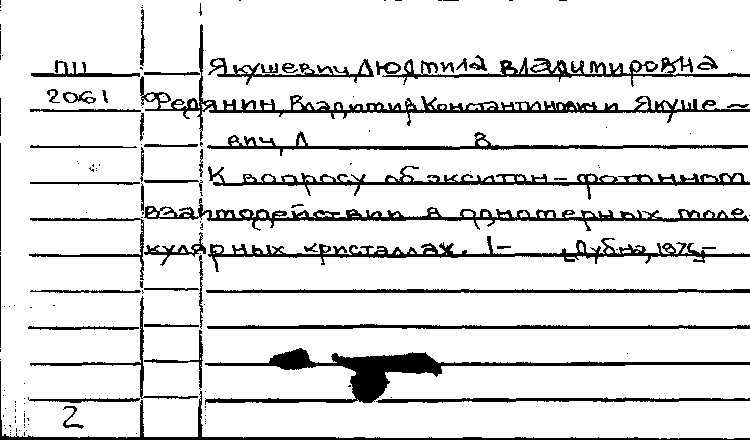 ПП Якушевич, Людмила Владимировна
2061 Федянин, Владимир Константинович и Якуше-
вич, Л В
К вопросу об экситон-фотонном
взаимодействии в одномерных моле
кулярных кристаллах. 1- [Дубна, 1976]-
2